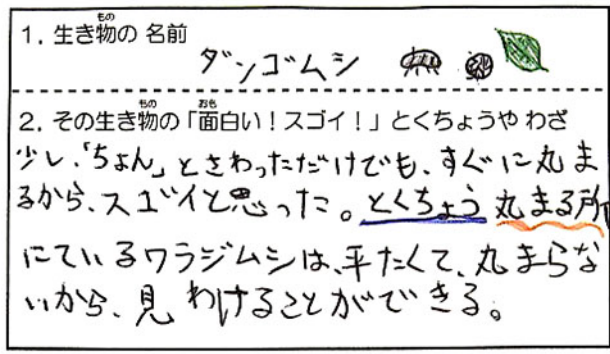 1. 生き物の 名前
ダンゴムシ
2. その生き物の「面白い！スゴイ！」とくちょうや わざ
少し、「ちょん」とさわっただけでも、すぐに丸ま
るから、スゴイと思った。とくちょう 丸まる所
にているワラジムシは、平たくて、丸まらな
いから、見わけることができる。